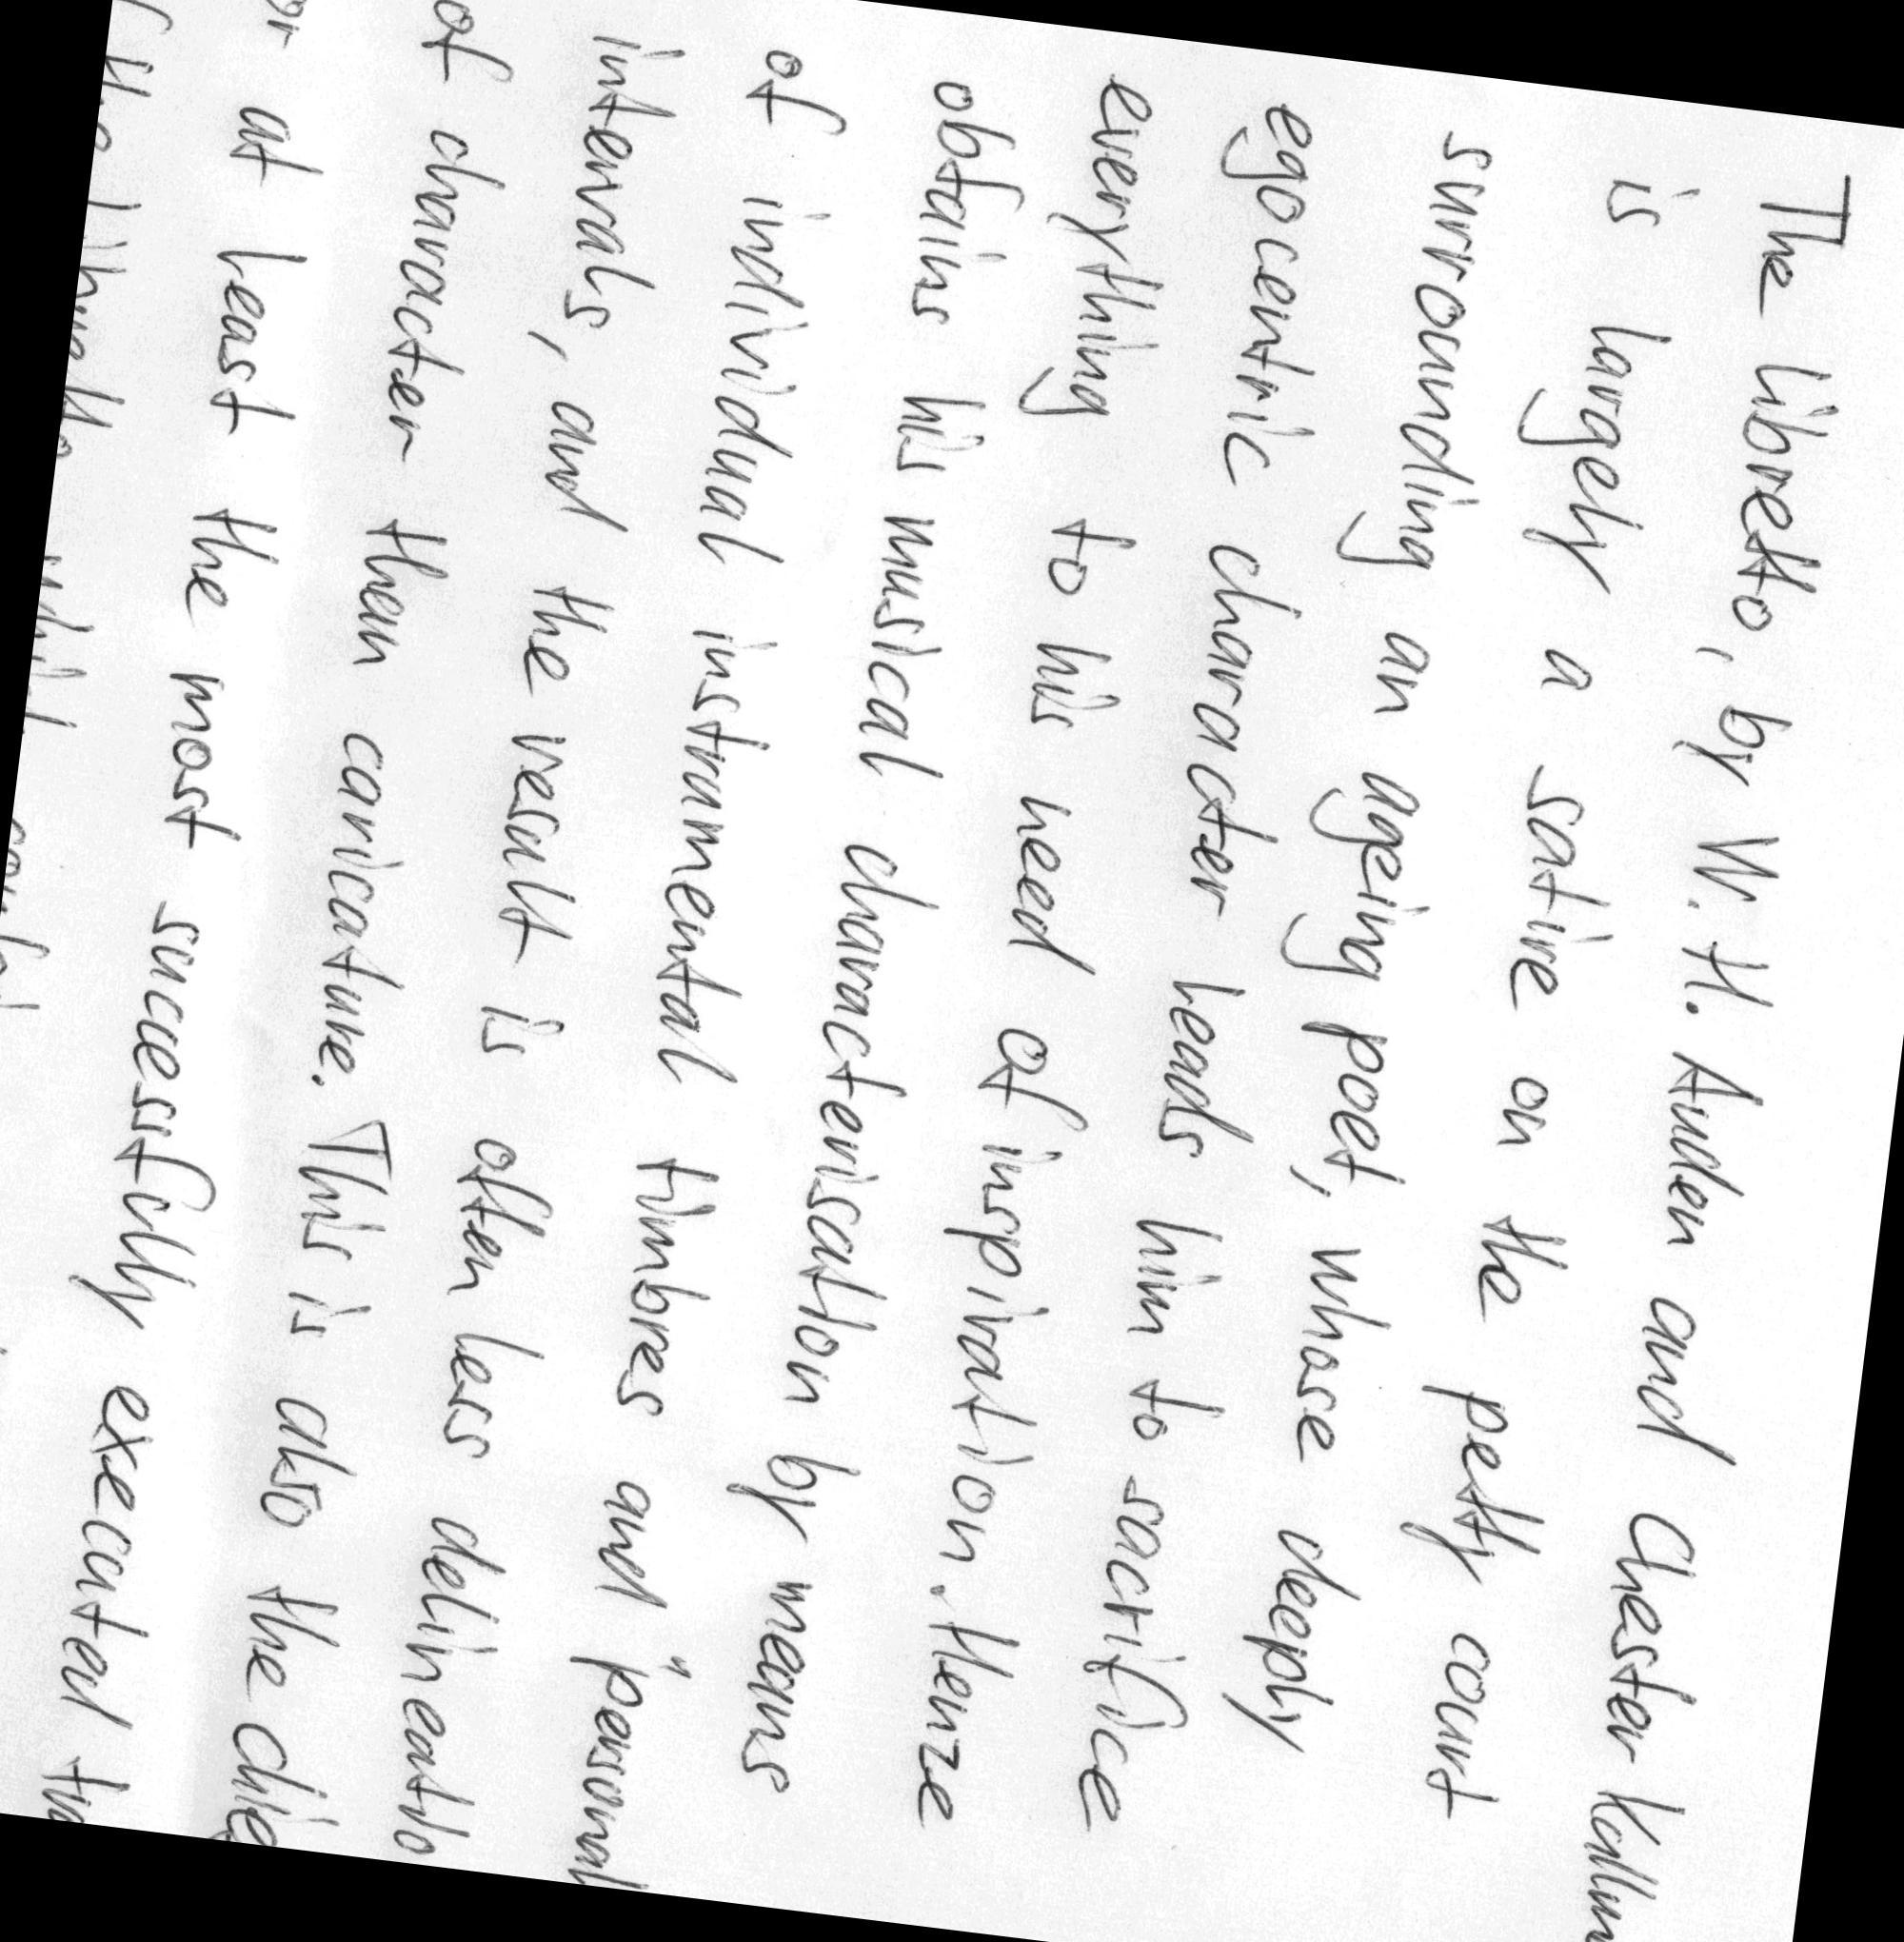 The libretto, by W. H. Auden and Chester Kallm
is largely a satire on the petty court
surrounding an ageing poet, whose deeply
egocentric character leads him to sacrifice
everything to his need of inspiration. Henze
obtains his musical characterisation by means
of individual instrumental timbres and "personal
intervals, and the result is often less delineatio
of character than caricature. This is also the chie
or at least the most successfully executed